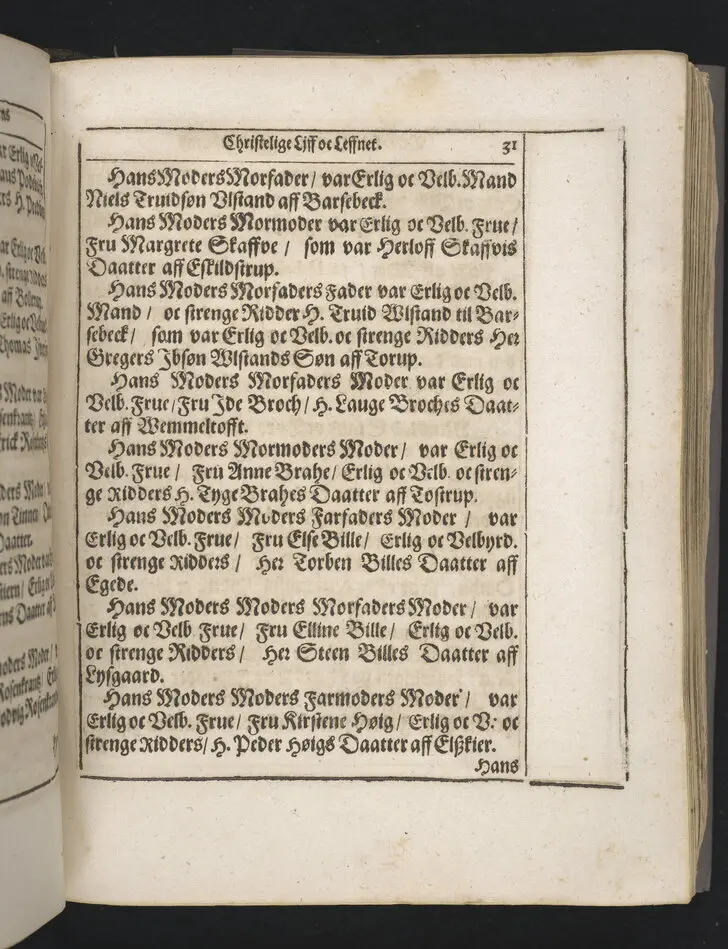 Christelige Liff oc Leffnet. 31
Hans Moders Morfader / var Erlig oc Velb. Mand
Niels Truidsøn Vlstand aff Barsebeck.
Hans Moders Mormoder var Erlig oc Velb. Frue /
Fru Margrete Skaffve / som var Herloff Skaffvis
Daatter aff Eskildstrup.
Hans Moders Morfaders Fader var Erlig oc Velb.
Mand / oc strenge Ridder H. Truid Wlstand til Bar-
sebeck / som var Erlig oc Velb. oc strenge Ridders Her
Gregers Jbsøn Wlstands Søn aff Torup.
Hans Moders Morfaders Moder var Erlig oc
Velb. Frue / Fru Jde Broch / H. Lauge Broches Daat-
ter aff Wemmeltofft.
Hans Moders Mormoders Moder / var Erlig oc
Velb. Frue / Fru Anne Brahe / Erlig oc Velb. oc stren-
ge Ridders H. Tyge Brahes Daatter aff Tostrup.
Hans Moders Moders Farfaders Moder / var
Erlig oc Velb. Frue / Fru Else Bille / Erlig oc Velbyrd.
oc strenge Ridders / Her Torben Billes Daatter aff
Egede.
Hans Moders Moders Morfaders Moder / var
Erlig oc Velb Frue / Fru Elline Bille / Erlig oc Velb.
oc strenge Ridders / Her Steen Billes Daatter aff
Lysgaard.
Hans Moders Moders Farmoders Moder / var
Erlig oc Velb. Frue / Fru Kirstene Høig / Erlig oc V. oc
strenge Ridders / H. Peder Høigs Daatter aff Elßkier.
Hans